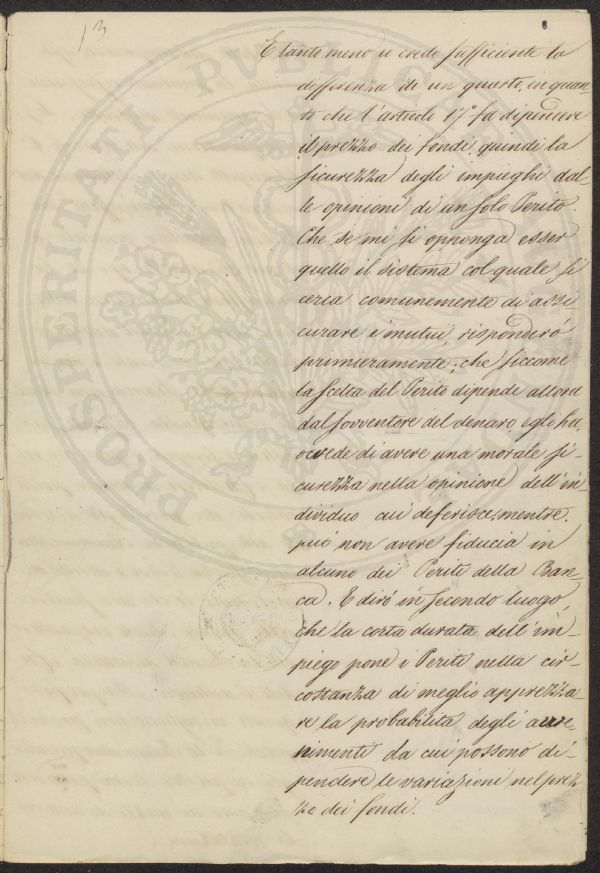 13
E tanto meno si crede sufficiente la
differenza di un quarto, in quan-
to che l'articolo 17.° fa dipendere
il prezzo dei fondi, quindi la
sicurezza degli impieghi dal-
le opinioni di un solo Perito.
Che se mi si opponga esser
quello il sistema col quale si
cerca comunemente di assi
curare i mutui, risponderó
primieramente; che siccome
la scelta del Perito dipende allora
dal sovventore del denaro, egli ha,
o crede di avere una morale si-
curezza nella opinione dell'in-
dividuo cui deferisce, mentre.
può non avere fiducia in
alcuno dei Periti della Ban-
ca. E diró in secondo luogo,
che la corta durata dell'im-
piego pone i Periti nella cir-
costanza di meglio apprezza-
re la probabilità degli avve
nimenti da cui possono di-
pendere le variazioni nel prez-
zo dei fondi.
PROSPERITATI PUBLICAE